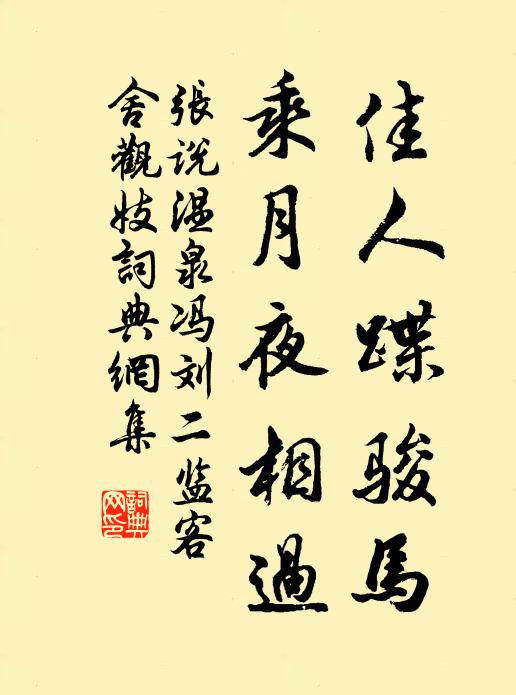 佳人蹀骏馬
乘月夜相過
張说温泉冯刘二监客
舍觀妓詞典網集
詞典网印